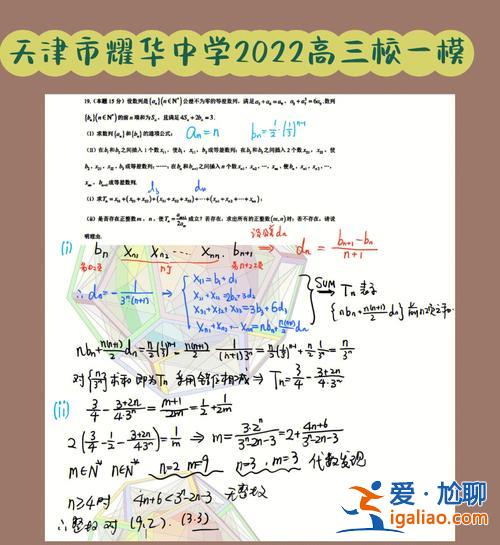 天津市耀华中学2022高三校一模
19.(本题 15 分) 设数列是{aₙ}(n∈N*)公差不为零的等差数列,满足a₃+a₆=a₉,a₅+a₇²=6a₉.数列
{bₙ}(n∈N*)的前n项和为Sₙ,且满足4Sₙ+2bₙ=3.
(I) 求数列{aₙ}和{bₙ}的通项公式;
aₙ=n
bₙ=1/2·(1/3)ⁿ⁻¹
(II) 在b₁和b₂之间插入1个数x₁₁,使b₁,x₁₁,b₂成等差数列;在b₂和b₃之间插入2个数x₂₁,x₂₂,使
b₂,x₂₁,x₂₂,b₃成等差数列;……;在bₙ和bₙ₊₁之间插入n个数xₙ₁,xₙ₂,…,xₙₙ,使bₙ,xₙ₁,xₙ₂,…,
xₙₙ,bₙ₊₁成等差数列.
(i) 求Tₙ=x₁₁+(x₂₁+x₂₂)+(x₃₁+x₃₂+x₃₃)+…+(xₙ₁+xₙ₂+…+xₙₙ);
(ii) 是否存在正整数m,n,使Tₙ=aₘ₊₁/2aₘ成立?若存在,求出所有的正整数对(m,n)对;若不存在,请说
明理由.
(i) bₙ xₙ₁ xₙ₂ … xₙₙ bₙ₊₁ ⇒ dₙ=(bₙ₊₁-bₙ)/(n+1)
n个
第n+2项
∴dₙ=-1/(3ⁿ(n+1)) ⇒
x₁₁=b₁+d₁
x₂₁+x₂₂=2b₂+3d₂
x₃₁+x₃₂+x₃₃=3b₃+6d₃
xₙ₁+xₙ₂+…xₙₙ=nbₙ+n(n+1)/2 dₙ
SUM→Tₙ
{nbₙ+n(n+1)/2 dₙ}前n项之和
nbₙ+n(n+1)/2 dₙ=n/2(1/3)ⁿ⁻¹-n(n+1)/2·1/((n+1)3ⁿ)=n/3ⁿ
对{n/3ⁿ}求和即为Tₙ 采用错位相减⇒Tₙ=3/4-(3+2n)/(4·3ⁿ)
(ii) 3/4-(3+2n)/(4·3ⁿ)=(m+1)/2m=1/2+1/2m
2(3/4-1/2-(3+2n)/(4·3ⁿ))=1/m ⇒ m=(2·3ⁿ)/(3ⁿ-2n-3)=2+(4n+6)/(3ⁿ-2n-3)
m∈N* n∈N* n=2 m=9 n=3,m=3 代数发现
n≥4时 4n+6<3ⁿ-2n-3 无整数
∴整数对(9,2).(3,3)
爱·尬聊
igaliao.com